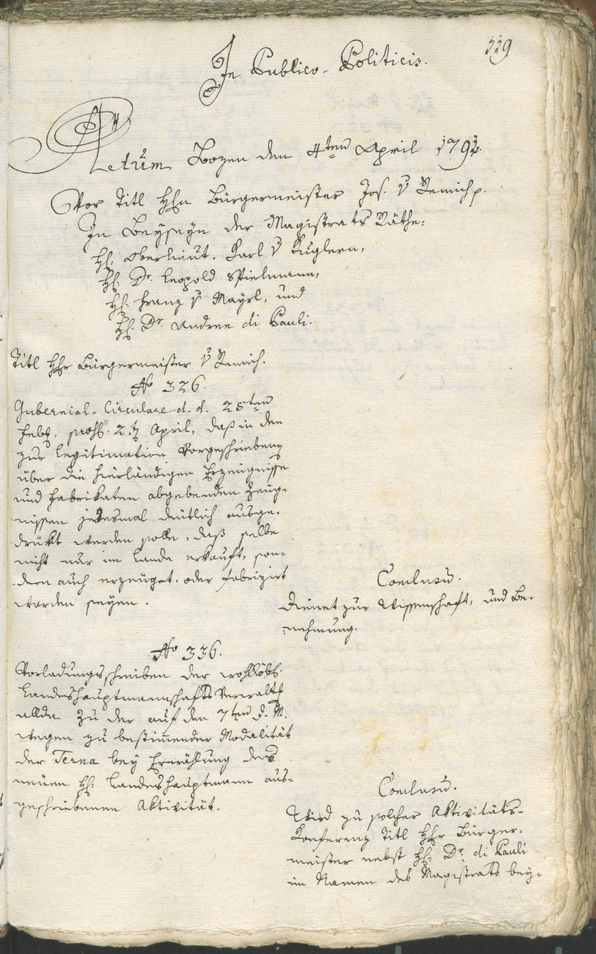 119
In Publico-Politicis.
Actum Bozen den 4ten April 1794.
Vor Titl Hhn Bürgermeister Jos. v Remich p.
In Beyseyn der Magistrats Räthe:
Hh. Oberlieut. Karl v Kuglern,
Hh. Dr. Leopold Spielmann,
Hh. Franz v Mayrl, und
Hh. Dr. Andree di Pauli.
Titl Hhr Bürgermeister v Remich.
No 326.
Gubernial-Circulare d. d. 28ten
Feb. 2. April, daß in den
zur Legitimation vorgeschriebenen
über die hierländigen Erzeugnisse
und Fabrikaten abgebenden Zeug-
nissen jedesmal deutlich ausge-
drükt werden solle, daß selbe
nicht nur im Lande erkauft, son-
dern auch erzeuget, oder fabrizirt
worden seyen.
Conclusum.
Dienet zur Wissenschaft, und Be-
nehmung.
No 336.
Vorladungsschreiben der wohllöbl.
Landeshauptmannschafts Verwaltg
allda zu der auf den 7ten d. M.
wegen zu bestimmender Modalität
der Terna bey Erwählung des
neuen Hh. Landeshauptmann aus-
geschriebenen Aktivität.
Conclusum.
Wird zu solcher Aktivitäts-
Konferenz Titl Hhr Bürger-
meister nebst Hh. Dr. di Pauli
im Namen des Magistrats bey-